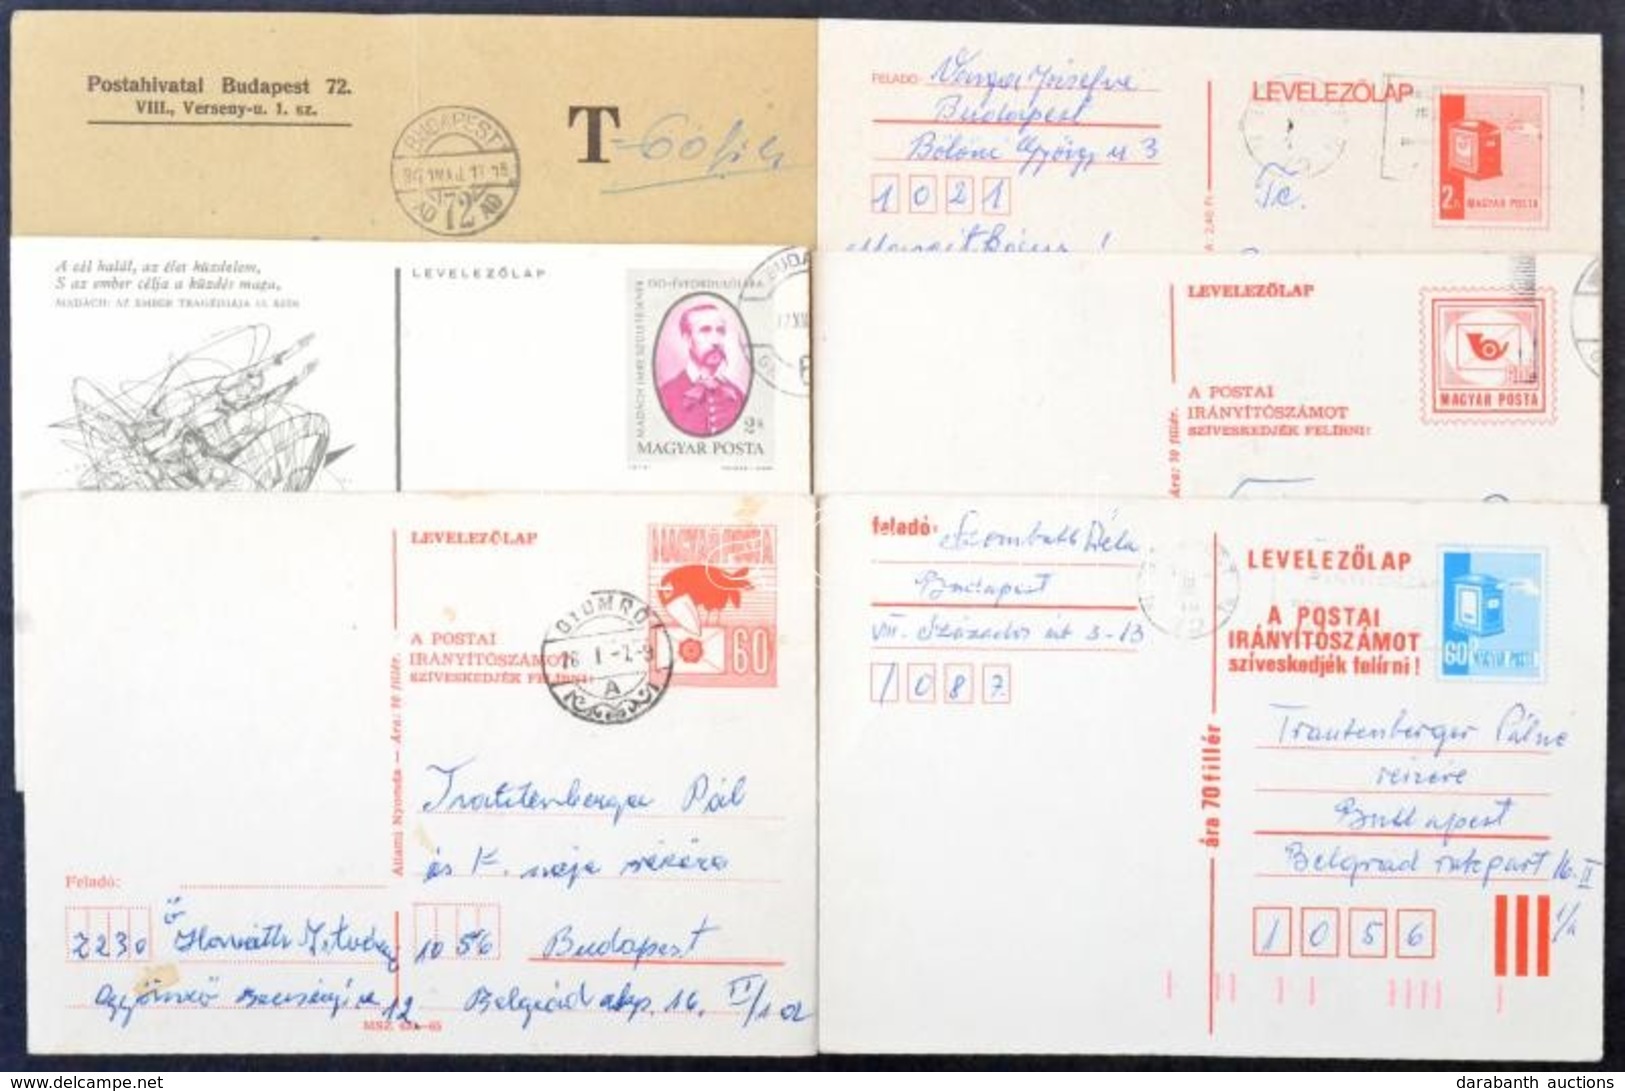 Postahivatal Budapest 72.
VIII., Verseny-u. 1. sz.
BUDAPEST
72
T-60 fill
FELADÓ: Varga Józsefné
Budapest
Bölöni György u 3
1021
LEVELEZŐLAP
2 Ft MAGYAR POSTA
Á: 2,40 Ft
Te.
A cél halál, az élet küzdelem,
S az ember célja a küzdés maga.
MADÁCH: AZ EMBER TRAGÉDIÁJA
LEVELEZŐLAP
MADÁCH IMRE SZÜLETÉSÉNEK 150. ÉVFORDULÓJÁRA
2 Ft
MAGYAR POSTA
LEVELEZŐLAP
A POSTAI
IRÁNYÍTÓSZÁMOT
SZÍVESKEDJÉK FELÍRNI!
MAGYAR POSTA
Ára: 30 fillér.
LEVELEZŐLAP
MAGYAR POSTA
60
A POSTAI
IRÁNYÍTÓSZÁMOT
SZÍVESKEDJÉK FELÍRNI!
A
Állami Nyomda — Ára: 70 fillér.
Feladó:
7230
Horváth Istvány
12
1056
Budapest
Belgrád rkp. 16. II/1a
MSZ
feladó: Szombath Béla
Budapest
VIII. Százados út 3-13
1087
LEVELEZŐLAP
A POSTAI
IRÁNYÍTÓSZÁMOT
szíveskedjék felírni!
60 f MAGYAR POSTA
ára 70 fillér
Trautenberger Pálné
részére
Budapest
Belgrád rakpart 16. II
1/a
1056
darabanth auctions
www.delcampe.net